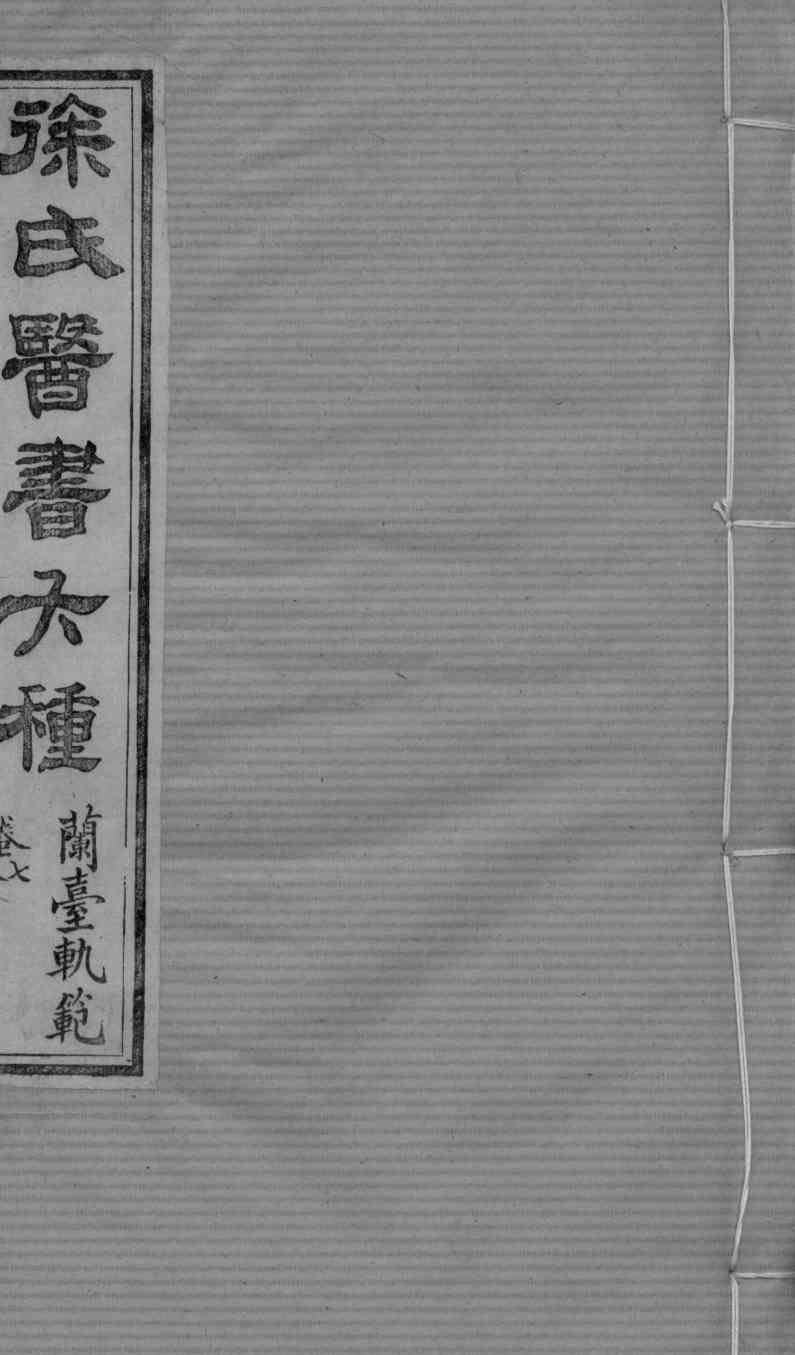 徐氏醫書六種
蘭臺軌範
卷七